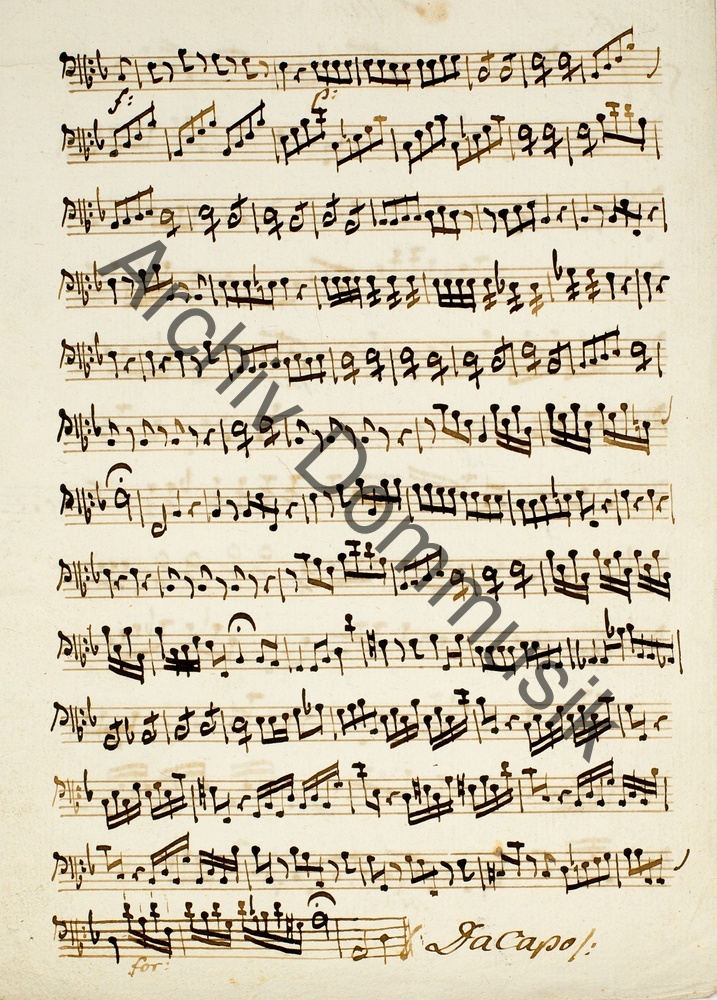 f: p:
Archiv Dommusik
Da Capo /:
for: